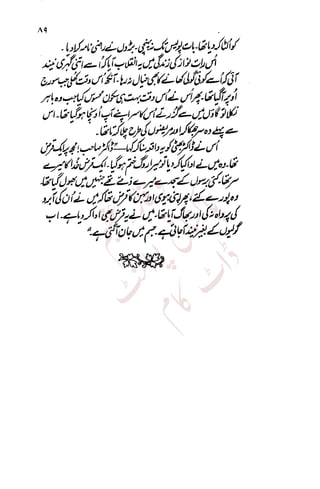 ۸۹
کو اٹھا کر دیا تھا۔ بات پولیس تک نہ پہنچی۔ بڑوں نے راضی نامہ کرا دیا۔
اُس رات نواز کی زندگی میں یہ انقلاب آیا کہ اُسے اتنی گہری نیند
آئی کہ اُسے کوئی گولی کھانے کا بھی خیال نہ رہا۔ آنکھ اُس وقت کھلی جب سورج
اُوپر آ گیا تھا۔ پھر اُس نے اُس وقت بہت ہی سکون محسوس کیا جب وہ باہر
نکلا تو گاؤں میں سے گزرتے اُس کا سر اپنے آپ اُونچا ہو گیا تھا۔ اس
سے پہلے وہ سر جھکا کر اور مریضوں کی طرح چلا کرتا تھا۔
اُس نے ڈاکٹر کو یہ واقعہ سنا کر کہا — "ڈاکٹر صاحب! مجھ پر ایک قرض
تھا۔ وہ میں نے ادا کیا کر دیا تو میرا روگ ختم ہو گیا۔ ایک قرض خدا کا میرے
سر تھا۔ کئی برسوں کے سجدے میرے ذمے تھے جنہیں میں بھول گیا تھا۔
وہ پورے کئے، پھر اپنی بیوی اور بہن کا قرض تھا کہ میں نے اُن کی آبرو
کی پرواہ نہ کی اور بھاگ آیا تھا۔ میں نے یہ قرض بھی ادا کر دیا ہے۔ اب
گولیوں کے بغیر نیند آ جاتی ہے۔ جسم میں جان آ گئی ہے۔"
ڈاٹ کام